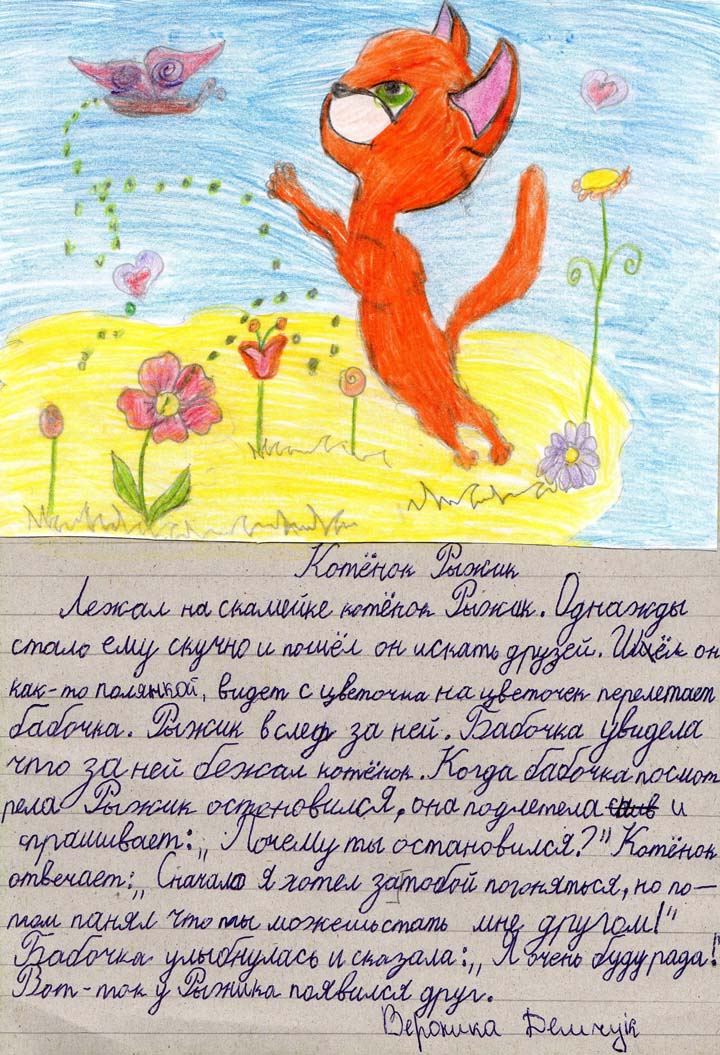 Котёнок Рыжик
Лежал на скамейке котёнок Рыжик. Однажды
стало ему скучно и пошёл он искать друзей. Шёл он
как-то полянкой, видет с цветочка на цветочек перелетает
бабочка. Рыжик вслед за ней. Бабочка увидела
что за ней бежал котёнок. Когда бабочка посмот
рела Рыжик остоновился, она подлетела и
спрашивает: „Почему ты остановился?" Котёнок
отвечает: „Сначало я хотел за тобой погоняться, но по-
том панял что ты можешь стать мне другом!"
Бабочка улыбнулась и сказала: „Я очень буду рада!"
Вот-так у Рыжика появился друг.
Вероника Демчук